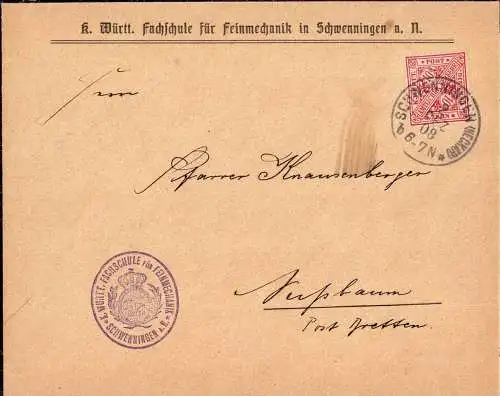 K. Württ. Fachschule für Feinmechanik in Schwenningen a. N.
Herrn
POST
SCHWENNINGEN (NECKAR)
08
6-7N
Pfarrer Knausenberger
Nußbaum
Post Bretten.
K. WÜRTT. FACHSCHULE FÜR FEINMECHANIK
SCHWENNINGEN a. N.